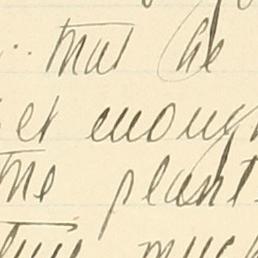 that he
et enough
the plant
much